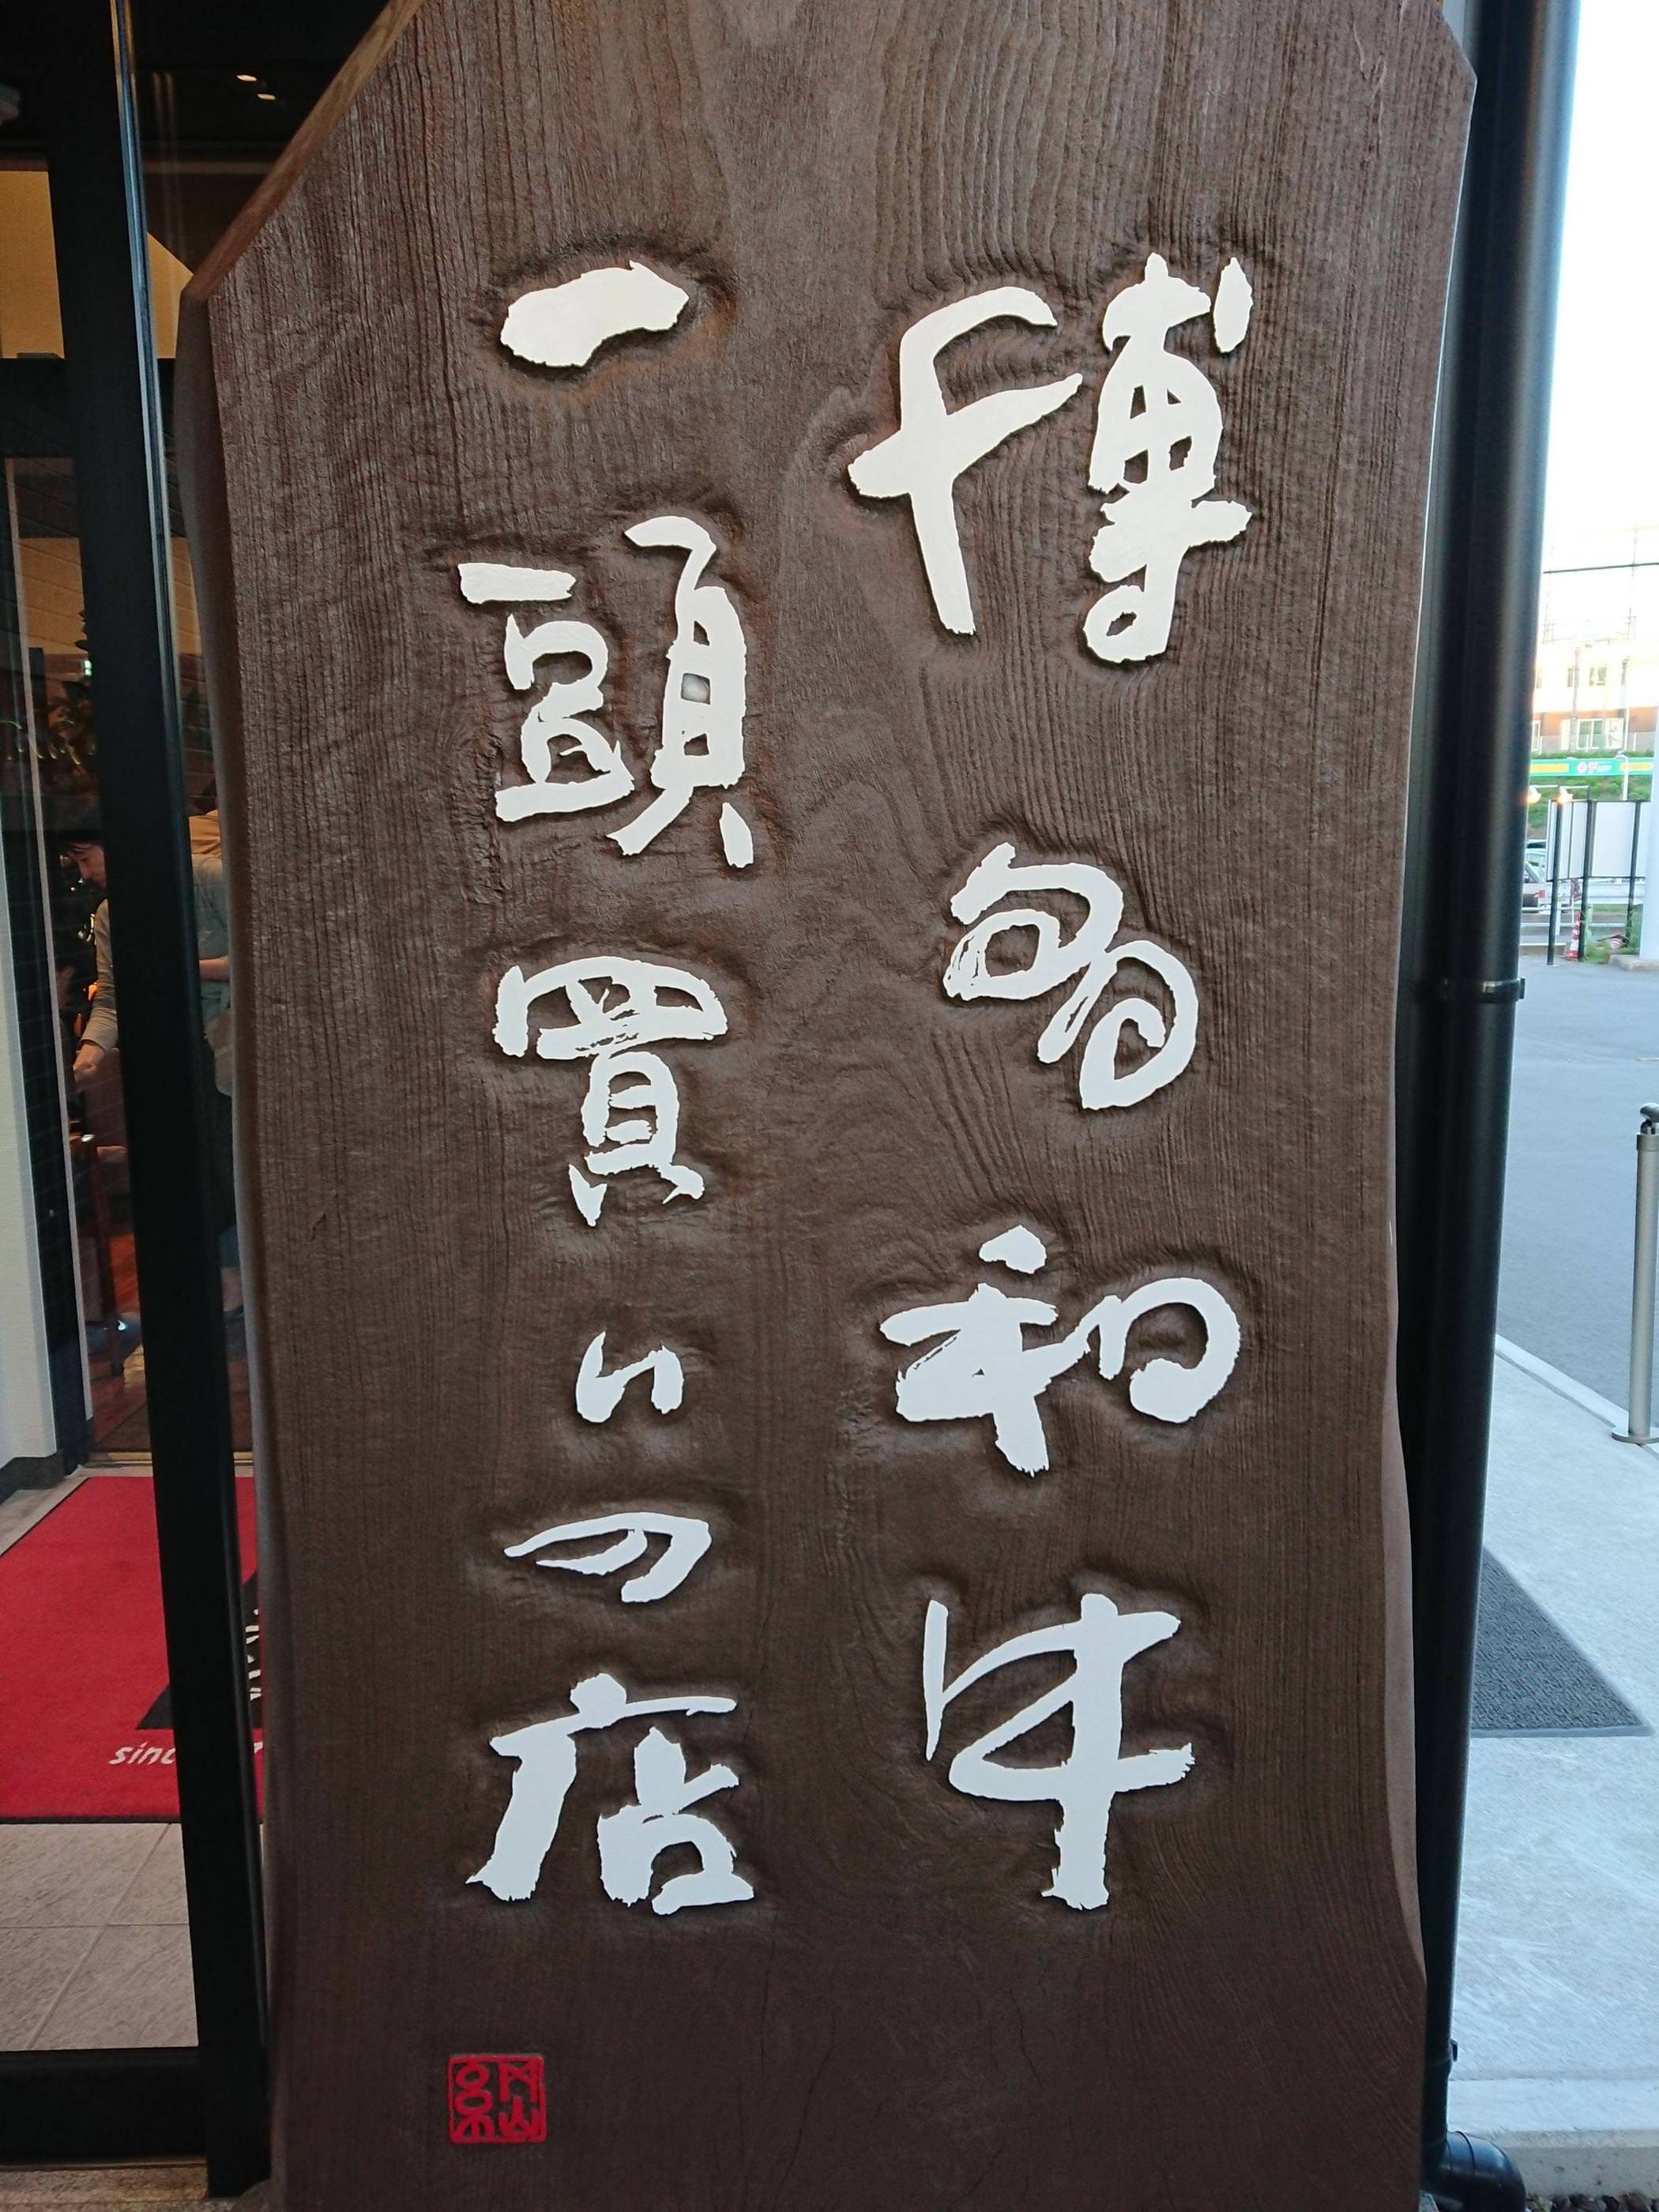 博多和牛
一頭買いの店
sinc